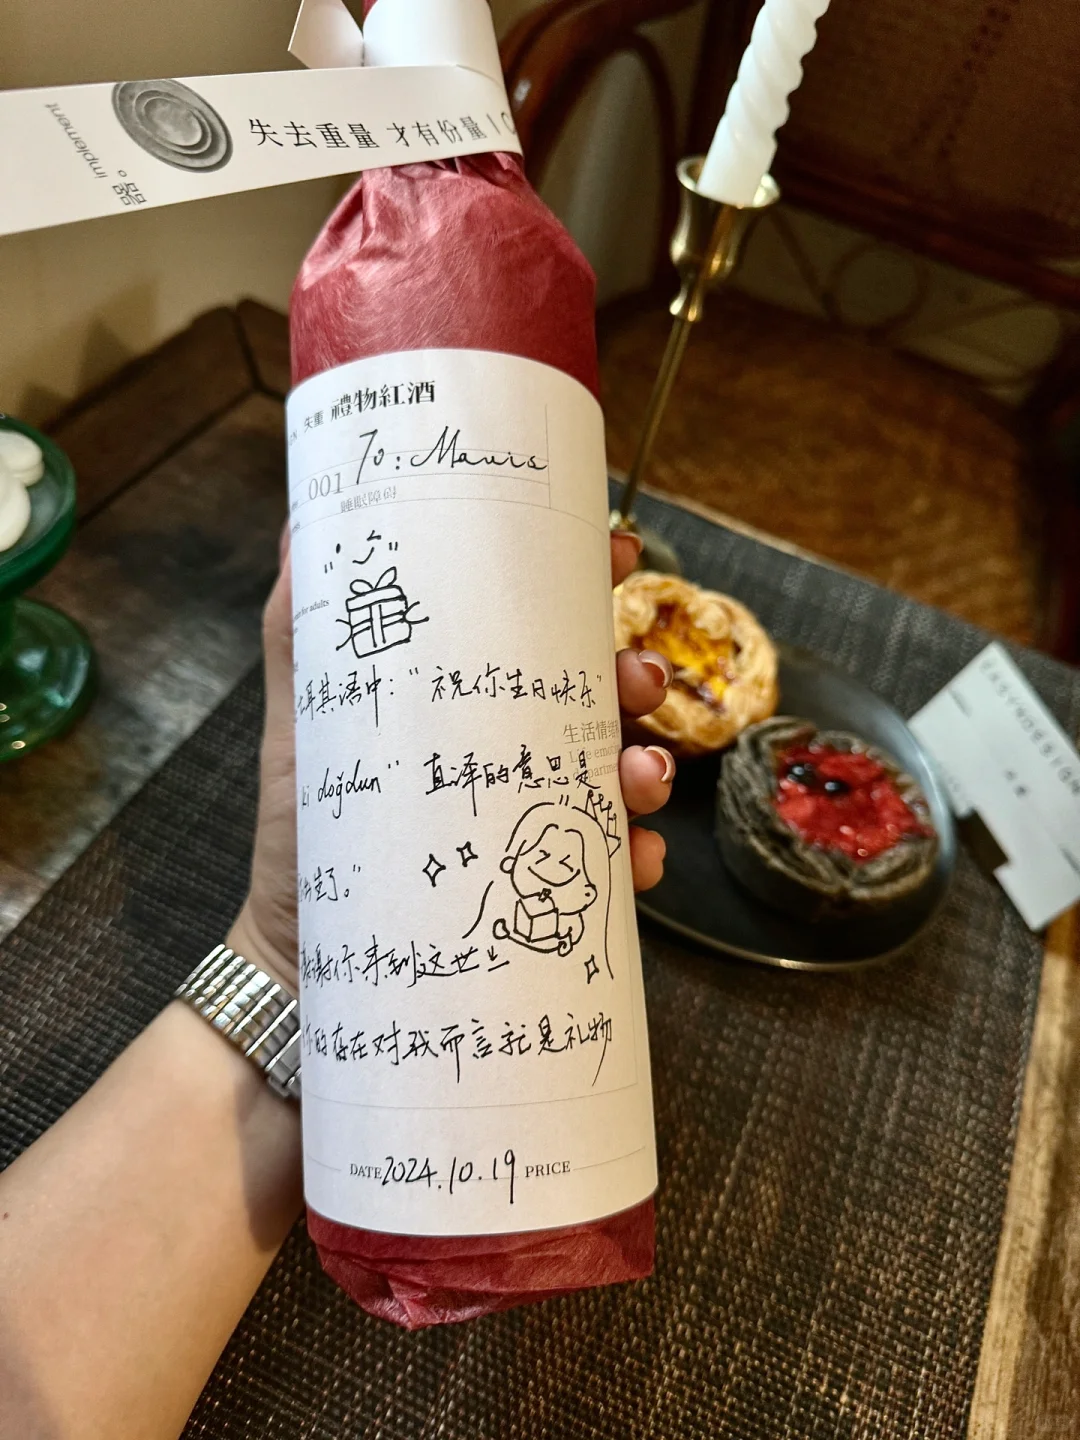 失去重量 才有份量
implement
器
失重 禮物紅酒
To: Mavis
001
睡眠障碍
for adults
土耳其语中：“祝你生日快乐”
ki doğdun” 直译的意思是
生活情绪
Life
出生了。”
感谢你来到这世上
你的存在对我而言就是礼物
DATE 2024.10.19 PRICE